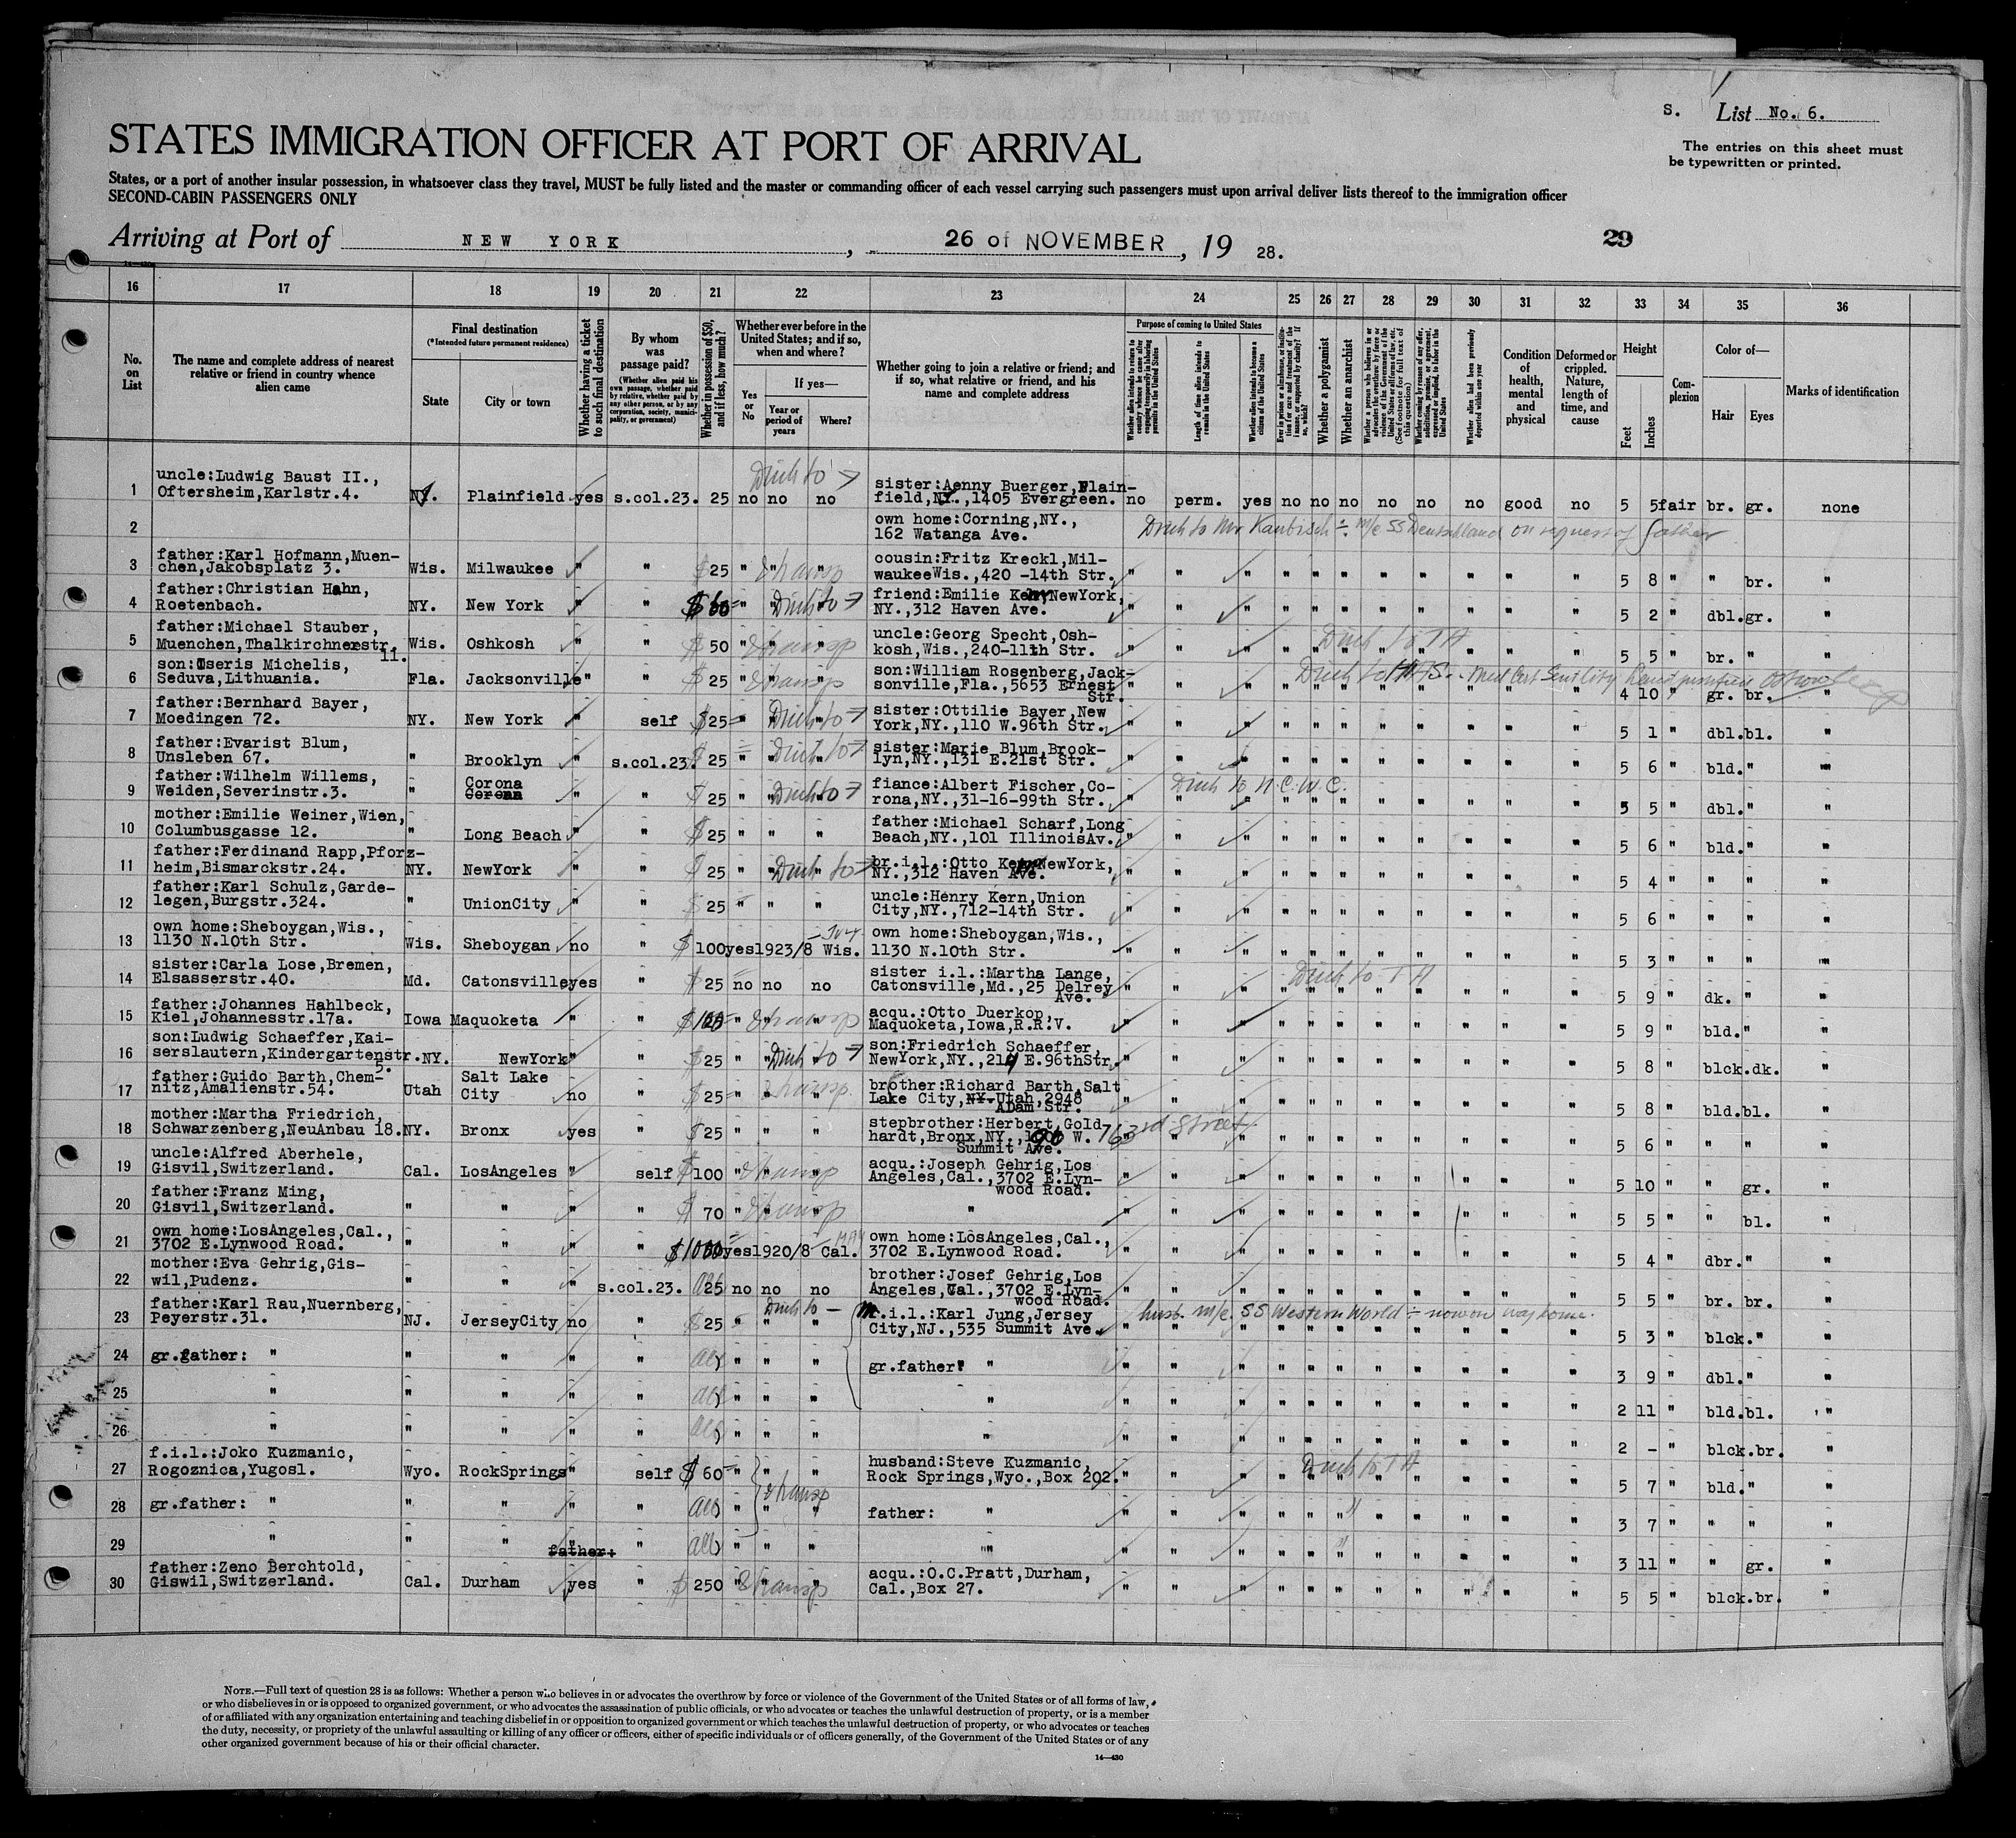 S. List No. 6.
STATES IMMIGRATION OFFICER AT PORT OF ARRIVAL
The entries on this sheet must
be typewritten or printed.
States, or a port of another insular possession, in whatsoever class they travel, MUST be fully listed and the master or commanding officer of each vessel carrying such passengers must upon arrival deliver lists thereof to the immigration officer
SECOND-CABIN PASSENGERS ONLY
Arriving at Port of NEW YORK, 26 of NOVEMBER, 19 28.
29
16 17 18 19 20 21 22 23 24 25 26 27 28 29 30 31 32 33 34 35 36
No. on List
The name and complete address of nearest relative or friend in country whence alien came
Final destination
(*Intended future permanent residence)
State
City or town
Whether having a ticket to such final destination
By whom was passage paid?
(Whether alien paid his own passage, whether paid by relative, whether paid by any other person, or by any corporation, society, municipality, or government)
Whether in possession of $50, and if less, how much?
Whether ever before in the United States; and if so, when and where?
Yes or No
If yes—
Year or period of years
Where?
Whether going to join a relative or friend; and if so, what relative or friend, and his name and complete address
Purpose of coming to United States
Length of time alien intends to remain in the United States
Whether alien intends to become a citizen of the United States
Whether a polygamist
Whether an anarchist
Whether alien had been previously deported within one year
Condition of health, mental and physical
Deformed or crippled. Nature, length of time, and cause
Height
Feet
Inches
Complexion
Color of—
Hair
Eyes
Marks of identification
1 uncle:Ludwig Baust II., Oftersheim,Karlstr.4. Plainfield yes s.col.23. 25 no no no sister:Aenny Buerger,Plainfield, 1405 Evergreen. no perm. yes no no no no no no good no 5 5 fair br. gr. none
2 own home:Corning,NY., 162 Watanga Ave.
3 father:Karl Hofmann,Muenchen,Jakobsplatz 3. Wis. Milwaukee " " $25 " " " cousin:Fritz Kreckl,Milwaukee Wis.,420 -14th Str. " " " " " " " " " " " 5 8 " " br. "
4 father:Christian Hahn, Roetenbach. NY. New York " " " " " friend:Emilie NewYork, NY.,312 Haven Ave. " " " " " " " " " " " 5 2 " dbl.gr. "
5 father:Michael Stauber, Muenchen,Thalkirchnerstr. 11. Wis. Oshkosh " " $50 " " " uncle:Georg Specht,Oshkosh,Wis.,240-11th Str. " " " " " " " " " " " 5 5 " br. " "
6 son: Michelis, Seduva,Lithuania. Fla. Jacksonville " " $25 " " " son:William Rosenberg,Jacksonville,Fla.,5653 Ernest Str. " " " " " " " " " " " 4 10 " gr. br. "
7 father:Bernhard Bayer, Moedingen 72. NY. New York " self $25 " " " sister:Ottilie Bayer,New York,NY.,110 W.96th Str. " " " " " " " " " " " 5 1 " dbl.bl. "
8 father:Evarist Blum, Unsleben 67. " Brooklyn " s.col.23. $25 " " " sister:Marie Blum,Brooklyn,NY.,131 E.21st Str. " " " " " " " " " " " 5 6 " bld." "
9 father:Wilhelm Willems, Weiden,Severinstr.3. " Corona " " $25 " " " fiance:Albert Fischer,Corona,NY.,31-16-99th Str. " " " " " " " " " " " 5 5 " dbl." "
10 mother:Emilie Weiner,Wien, Columbusgasse 12. " Long Beach " " $25 " " " father:Michael Scharf,Long Beach,NY.,101 IllinoisAv. " " " " " " " " " " " 5 6 " bld." "
11 father:Ferdinand Rapp,Pforzheim,Bismarckstr.24. NY. NewYork " " $25 " " " br.i.l.:Otto NewYork, NY.,312 Haven Ave. " " " " " " " " " " " 5 4 " " " "
12 father:Karl Schulz,Gardelegen,Burgstr.324. " UnionCity " " $25 " " " uncle:Henry Kern,Union City,NY.,712-14th Str. " " " " " " " " " " " 5 6 " " " "
13 own home:Sheboygan,Wis., 1130 N.10th Str. Wis. Sheboygan no " $100 yes 1923/8 Wis. own home:Sheboygan,Wis., 1130 N.10th Str. " " " " " " " " " " " 5 3 " " " "
14 sister:Carla Lose,Bremen, Elsasserstr.40. Md. Catonsville yes " $25 no no no sister i.l.:Martha Lange, Catonsville,Md.,25 Delrey Ave. " " " " " " " " " " " 5 9 " dk. " "
15 father:Johannes Hahlbeck, Kiel,Johannesstr.17a. Iowa Maquoketa " " " " " acqu.:Otto Duerkop, Maquoketa,Iowa,R.R.V. " " " " " " " " " " " 5 9 " bld." "
16 son:Ludwig Schaeffer,Kaiserslautern,Kindergartenstr. 5. NY. NewYork " " $25 " " " son:Friedrich Schaeffer, NewYork,NY.,214 E.96thStr. " " " " " " " " " " " 5 8 " blck.dk. "
17 father:Guido Barth,Chemnitz,Amalienstr.54. Utah Salt Lake City no " $25 " " " brother:Richard Barth,Salt Lake City,NY.Utah,2948 Adam Str. " " " " " " " " " " " 5 8 " bld.bl. "
18 mother:Martha Friedrich, Schwarzenberg,NeuAnbau 18. NY. Bronx yes " $25 " " " stepbrother:Herbert Goldhardt,Bronx,NY., W. 163rd Street Summit Ave. " " " " " " " " " " 5 6 " " " "
19 uncle:Alfred Aberhele, Gisvil,Switzerland. Cal. LosAngeles " self $100 " " " acqu.:Joseph Gehrig,Los Angeles,Cal.,3702 E.Lynwood Road. " " " " " " " " " " " 5 10 " " gr. "
20 father:Franz Ming, Gisvil,Switzerland. " " " " $70 " " " " " " " " " " " " " " " 5 5 " " bl. "
21 own home:LosAngeles,Cal., 3702 E.Lynwood Road. " " " " yes 1920/8 Cal. own home:LosAngeles,Cal., 3702 E.Lynwood Road. " " " " " " " " " " " 5 4 " dbr." "
22 mother:Eva Gehrig,Giswil,Pudenz. " " " s.col.23. 25 no no no brother:Josef Gehrig,Los Angeles,Cal.,3702 E.Lynwood Road. " " " " " " " " " " " 5 5 " br. br. "
23 father:Karl Rau,Nuernberg, Peyerstr.31. NJ. JerseyCity no " $25 " " " i.l.:Karl Jung,Jersey City,NJ.,535 Summit Ave. husb. m/e. SS Western World ÷ now on way home. " " " " " " " " " " " 5 3 " blck." "
24 gr.father: " " " " " " " " gr.father: " " " " " " " " " " " " 3 9 " dbl." "
25 " " " " " " " " " " " " " " " " " " " " 2 11 " bld.bl. "
26 " " " " " " " " " " " " " " " " " " " " 2 - " blck.br. "
27 f.i.l.:Joko Kuzmanic, Rogoznica,Yugosl. Wyo. RockSprings " self $60 " " " husband:Steve Kuzmanic, Rock Springs,Wyo.,Box 202. " " " " " " " " " " " 5 7 " bld." "
28 gr.father: " " " " " " " " father: " " " " " " " " " " " " 3 7 " " " "
29 " " " " " " " " " " " " " " " " " " " " 3 11 " " gr. "
30 father:Zeno Berchtold, Giswil,Switzerland. Cal. Durham yes " $250 " " " acqu.:O.C.Pratt,Durham, Cal.,Box 27. " " " " " " " " " " " 5 5 " blck.br. "
NOTE.—Full text of question 28 is as follows: Whether a person who believes in or advocates the overthrow by force or violence of the Government of the United States or of all forms of law,
or who disbelieves in or is opposed to organized government, or who advocates the assassination of public officials, or who advocates or teaches the unlawful destruction of property, or is a member
of or affiliated with any organization entertaining and teaching disbelief in or opposition to organized government or which teaches the unlawful destruction of property, or who advocates or teaches
the duty, necessity, or propriety of the unlawful assaulting or killing of any officer or officers, either of specific individuals or of officers generally, of the Government of the United States or of any
other organized government because of his or their official character.
14—430